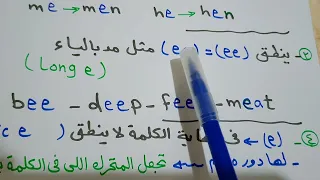 me → men he → hen
٣- ينطق (ee) = (e) مثل مد بالياء
(Long e)
bee - deep - feet - meat
٤- (e) في الكلمة لا ينطق
- لها دور تجعل المتحرك اللي في الكلمة